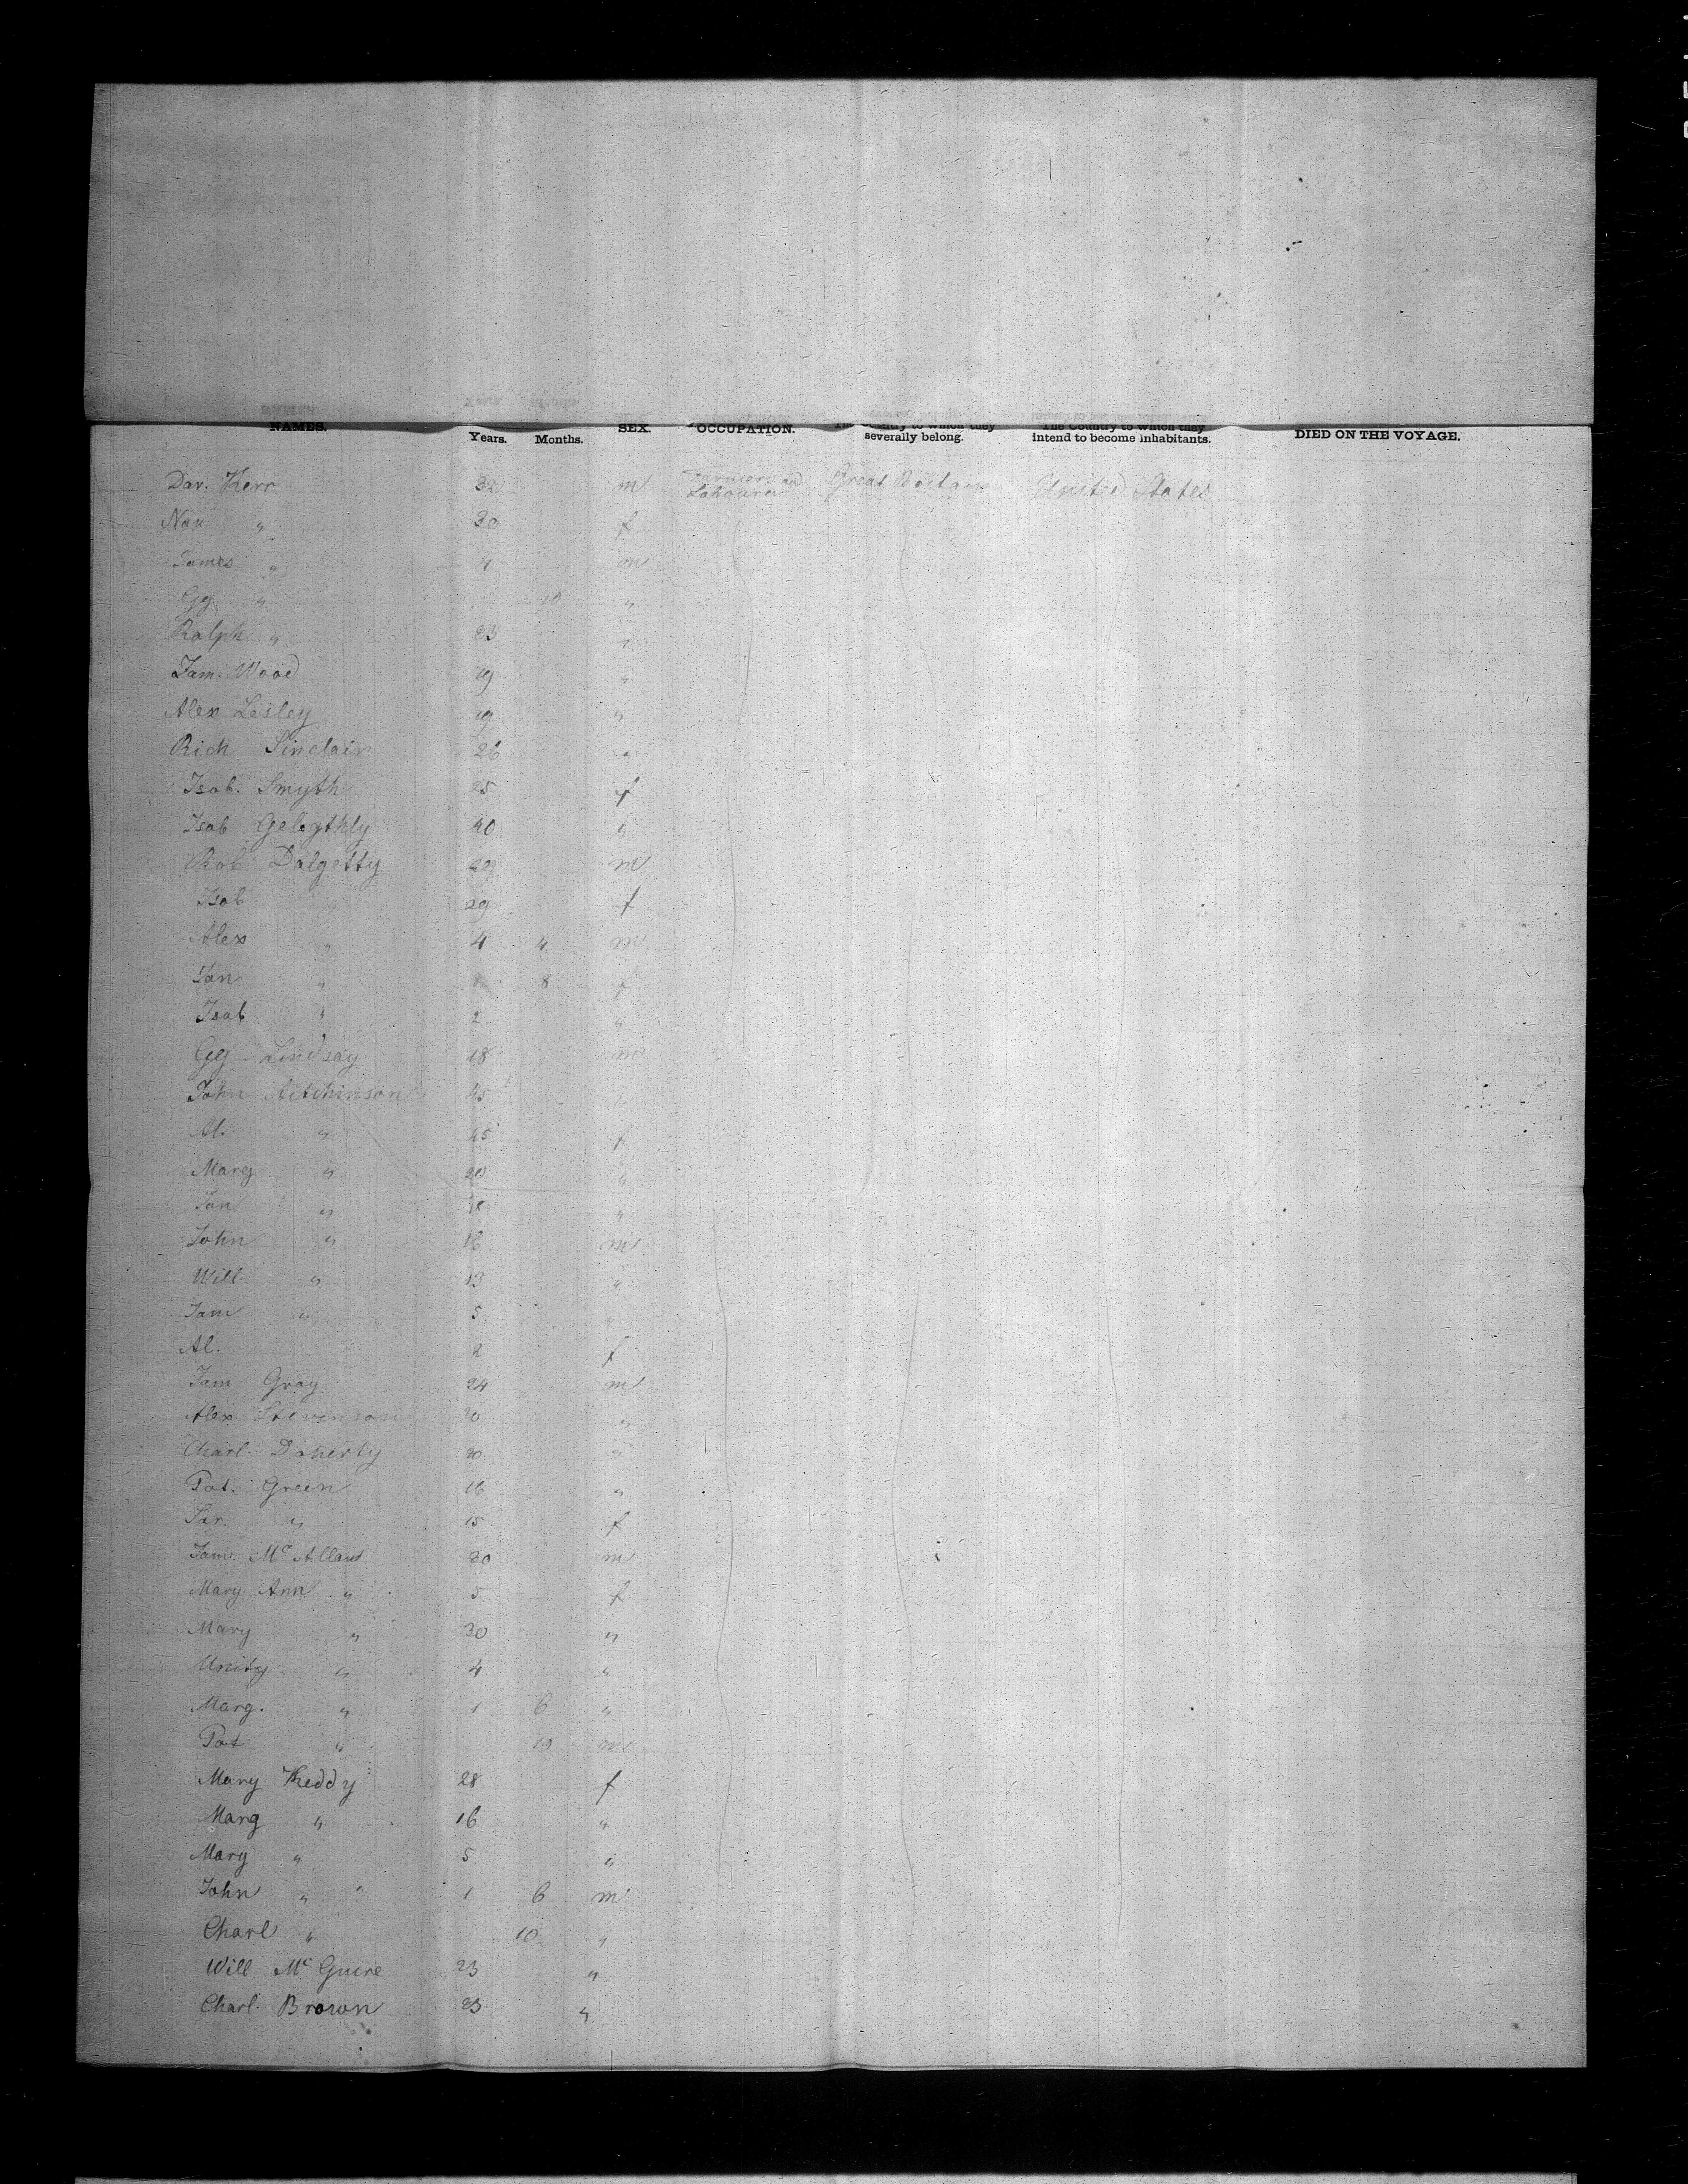 NAMES. Years. Months. SEX. OCCUPATION. The Country to which they severally belong. The Country to which they intend to become inhabitants. DIED ON THE VOYAGE.
Dav. Kerr 32 m Farmer and Labourer Great Britain United States
Nan " 30 f
James " 4 m
Gg " 10 "
Ralph " 23 "
Jam. Wood 19 "
Alex Lesley 19 "
Rich Sinclair 26 "
Isob. Smyth 25 f
Isab Gelegthly 40 "
Rob Dalgetty 29 m
Isob 29 f
Alex " 4 " m
Jan " 8 f
Isab " 2 "
Gg Lindsay 18 m
John Aitchinson 45 "
Al. " 45 f
Marg " 20 "
Jan " 18 "
John " 16 m
Will " 13 "
Jam " 5 "
Al. 2 f
Jam Gray 24 m
Alex Stevenson 20 "
Charl. Doherty 20 "
Pat. Green 16 "
Sar. " 15 f
Jam. McAllan 30 m
Mary Ann " 5 f
Mary " 30 "
Unity " 4 "
Marg. " 1 6 "
Pat " 10 m
Mary Keddy 28 f
Marg " 16 "
Mary " 5 "
John " " 1 6 m
Charl " 10 "
Will McGuire 23 "
Charl. Brown 23 "